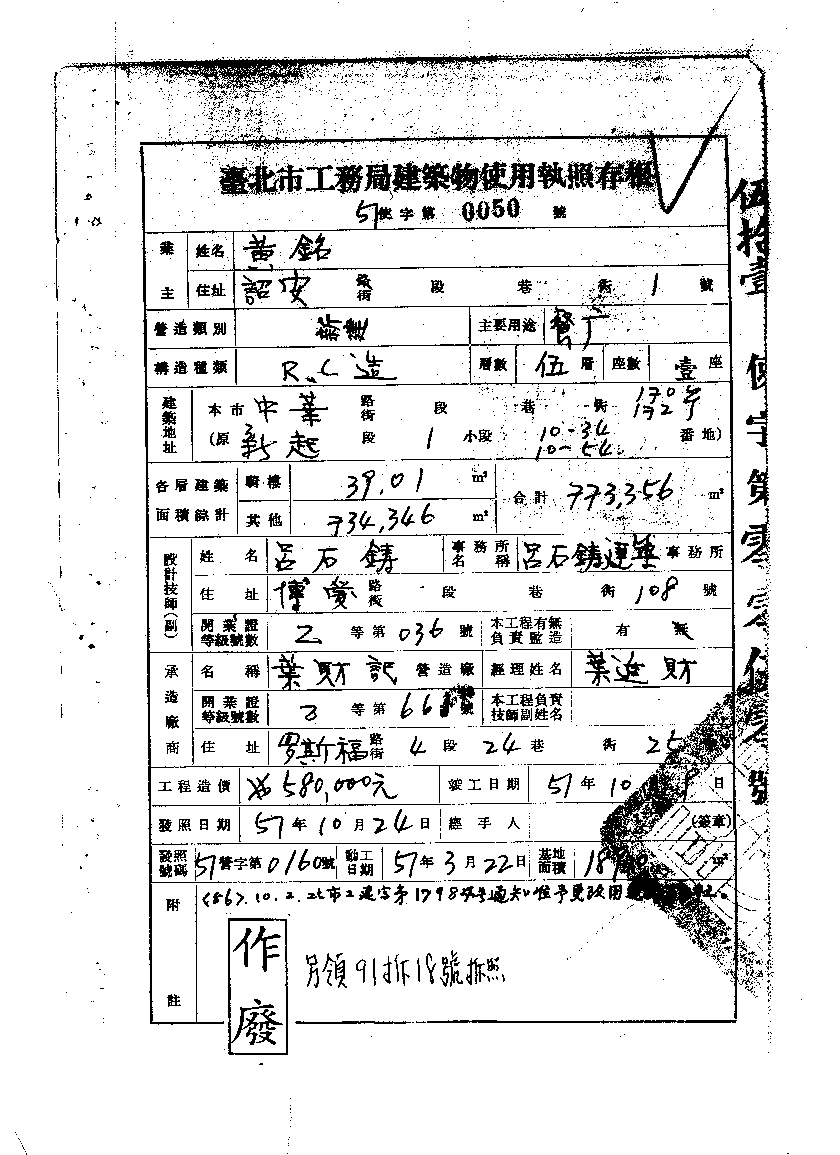 臺北市工務局建築物使用執照存根
51使字第 0050 號
業主 姓名 黃銘
住址 詔安 路街 段 巷 衖 1 號
營造類別 新建 主要用途 餐廳
構造種類 R.C造 層數 伍層 座數 壹座
建築地址 本市中華 路街 段 巷 衖 170 172號
(原 新起 段 1 小段 10-34 10-54 番地)
各層建築面積綜計 騎樓 39.01 m² 合計 773.356 m²
其他 734.346 m²
設計技師(副) 姓名 呂石鑄 事務所名稱 呂石鑄建築事務所
住址 博愛 路街 段 巷 衖 108 號
開業證等級號數 乙 等第 036 號 本工程有無負責監造 有 無
承造廠商 名稱 葉財記 營造廠 經理姓名 葉進財
開業證等級號數 乙 等第 號 本工程負責技師副姓名
住址 罗斯福 路街 4 段 24 巷 衖
工程造價 580,000元 竣工日期 51年10 日
發照日期 51年10月24日 經手人 (簽章)
發照號碼 51營字第0160號 動工日期 51年3月22日 基地面積 m²
附註 <86>.10.2.北市工建字第1798 号通知准予更改用
另領91拆18號拆照
作廢
伍拾壹 使字第零零伍零號